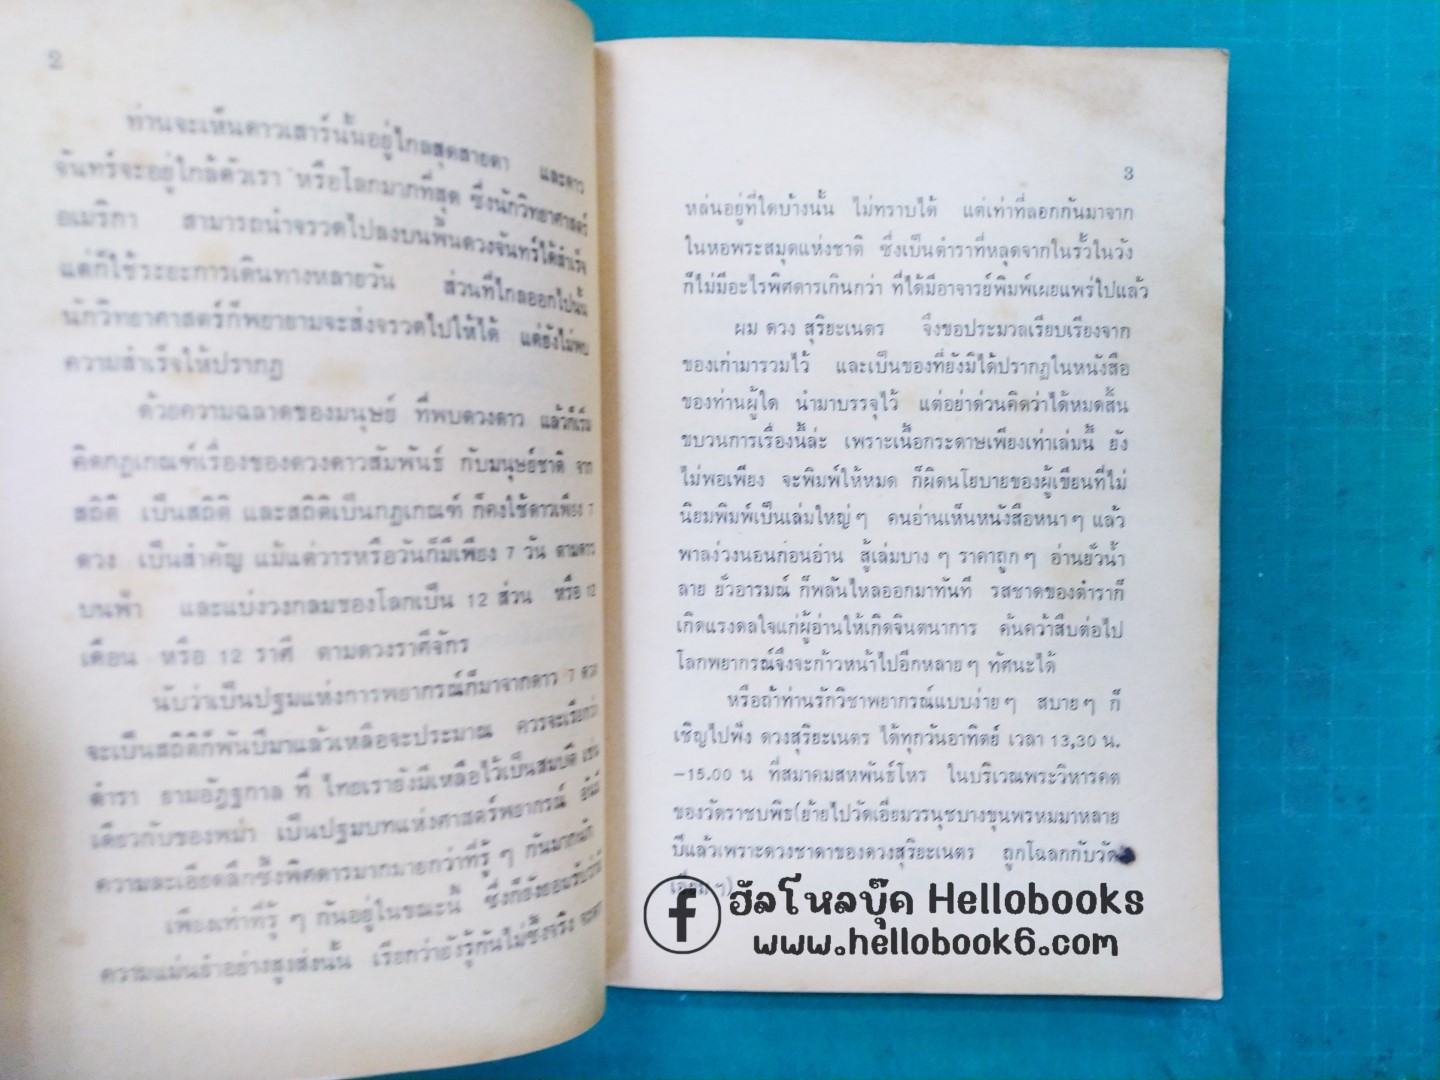 2
ท่านจะเห็นดาวเสาร์นั้นอยู่ไกลสุดสายตา และดาว
จันทร์จะอยู่ใกล้ตัวเรา หรือโลกมากที่สุด ซึ่งนักวิทยาศาสตร์
อเมริกา สามารถนำจรวดไปลงบนพื้นดวงจันทร์ได้สำเร็จ
แต่ก็ใช้ระยะการเดินทางหลายวัน ส่วนที่ไกลออกไปนั้น
นักวิทยาศาสตร์ก็พยายามจะส่งจรวดไปให้ได้ แต่ยังไม่พบ
ความสำเร็จให้ปรากฏ
ด้วยความฉลาดของมนุษย์ ที่พบดวงดาว แล้วก็เริ่ม
คิดกฎเกณฑ์เรื่องของดวงดาวสัมพันธ์ กับมนุษย์ชาติ จาก
สถิติ เป็นสถิติ และสถิติเป็นกฎเกณฑ์ ก็คงใช้ดาวเพียง 7
ดวง เป็นสำคัญ แม้แต่วารหรือวันก็มีเพียง 7 วัน ตามดาว
บนฟ้า และแบ่งวงกลมของโลกเป็น 12 ส่วน หรือ 12
เดือน หรือ 12 ราศี ตามดวงราศีจักร
นับว่าเป็นปฐมแห่งการพยากรณ์ก็มาจากดาว 7 ดวง
จะเป็นสถิติกี่พันปีมาแล้วเหลือจะประมาณ ควรจะเรียกว่า
ตำรา ยามอัฏฐกาล ที่ ไทยเรายังมีเหลือไว้เป็นสมบัติ เช่น
เดียวกับของพม่า เป็นปฐมบทแห่งศาสตร์พยากรณ์ อันมี
ความละเอียดลึกซึ้งพิศดารมากมายกว่าที่รู้ ๆ กันมากนัก
เพียงเท่าที่รู้ ๆ กันอยู่ในขณะนี้ ซึ่งก็ยังยอมรับว่ามี
ความแม่นยำอย่างสูงส่งนั้น เรียกว่ายังรู้กันไม่ซึ้งจริง
3
หล่นอยู่ที่ใดบ้างนั้น ไม่ทราบได้ แต่เท่าที่ลอกกันมาจาก
ในหอพระสมุดแห่งชาติ ซึ่งเป็นตำราที่หลุดจากในรั้วในวัง
ก็ไม่มีอะไรพิศดารเกินกว่า ที่ได้มีอาจารย์พิมพ์เผยแพร่ไปแล้ว
ผม ดวง สุริยะเนตร จึงขอประมวลเรียบเรียงจาก
ของเก่ามารวมไว้ และเป็นของที่ยังมิได้ปรากฏในหนังสือ
ของท่านผู้ใด นำมาบรรจุไว้ แต่อย่าด่วนคิดว่าได้หมดสิ้น
ขบวนการเรื่องนี้ล่ะ เพราะเนื้อกระดาษเพียงเท่าเล่มนี้ ยัง
ไม่พอเพียง จะพิมพ์ให้หมด ก็ผิดนโยบายของผู้เขียนที่ไม่
นิยมพิมพ์เป็นเล่มใหญ่ ๆ คนอ่านเห็นหนังสือหนา ๆ แล้ว
พาลง่วงนอนก่อนอ่าน สู้เล่มบาง ๆ ราคาถูก ๆ อ่านยั่วน้ำ
ลาย ยั่วอารมณ์ ก็พลันไหลออกมาทันที รสชาดของตำราก็
เกิดแรงดลใจแก่ผู้อ่านให้เกิดจินตนาการ ค้นคว้าสืบต่อไป
โลกพยากรณ์จึงจะก้าวหน้าไปอีกหลาย ๆ ทัศนะได้
หรือถ้าท่านรักวิชาพยากรณ์แบบง่าย ๆ สบาย ๆ ก็
เชิญไปฟัง ดวงสุริยะเนตร ได้ทุกวันอาทิตย์ เวลา 13,30 น.
-15.00 น ที่สมาคมสหพันธ์โหร ในบริเวณพระวิหารคต
ของวัดราชบพิธ(ย้ายไปวัดเอี่ยมวรนุชบางขุนพรหมมาหลาย
ปีแล้วเพราะดวงชาตาของดวงสุริยะเนตร ถูกโฉลกกับวัด
ฮัลโหลบุ๊ค Hellobooks
www.hellobook6.com